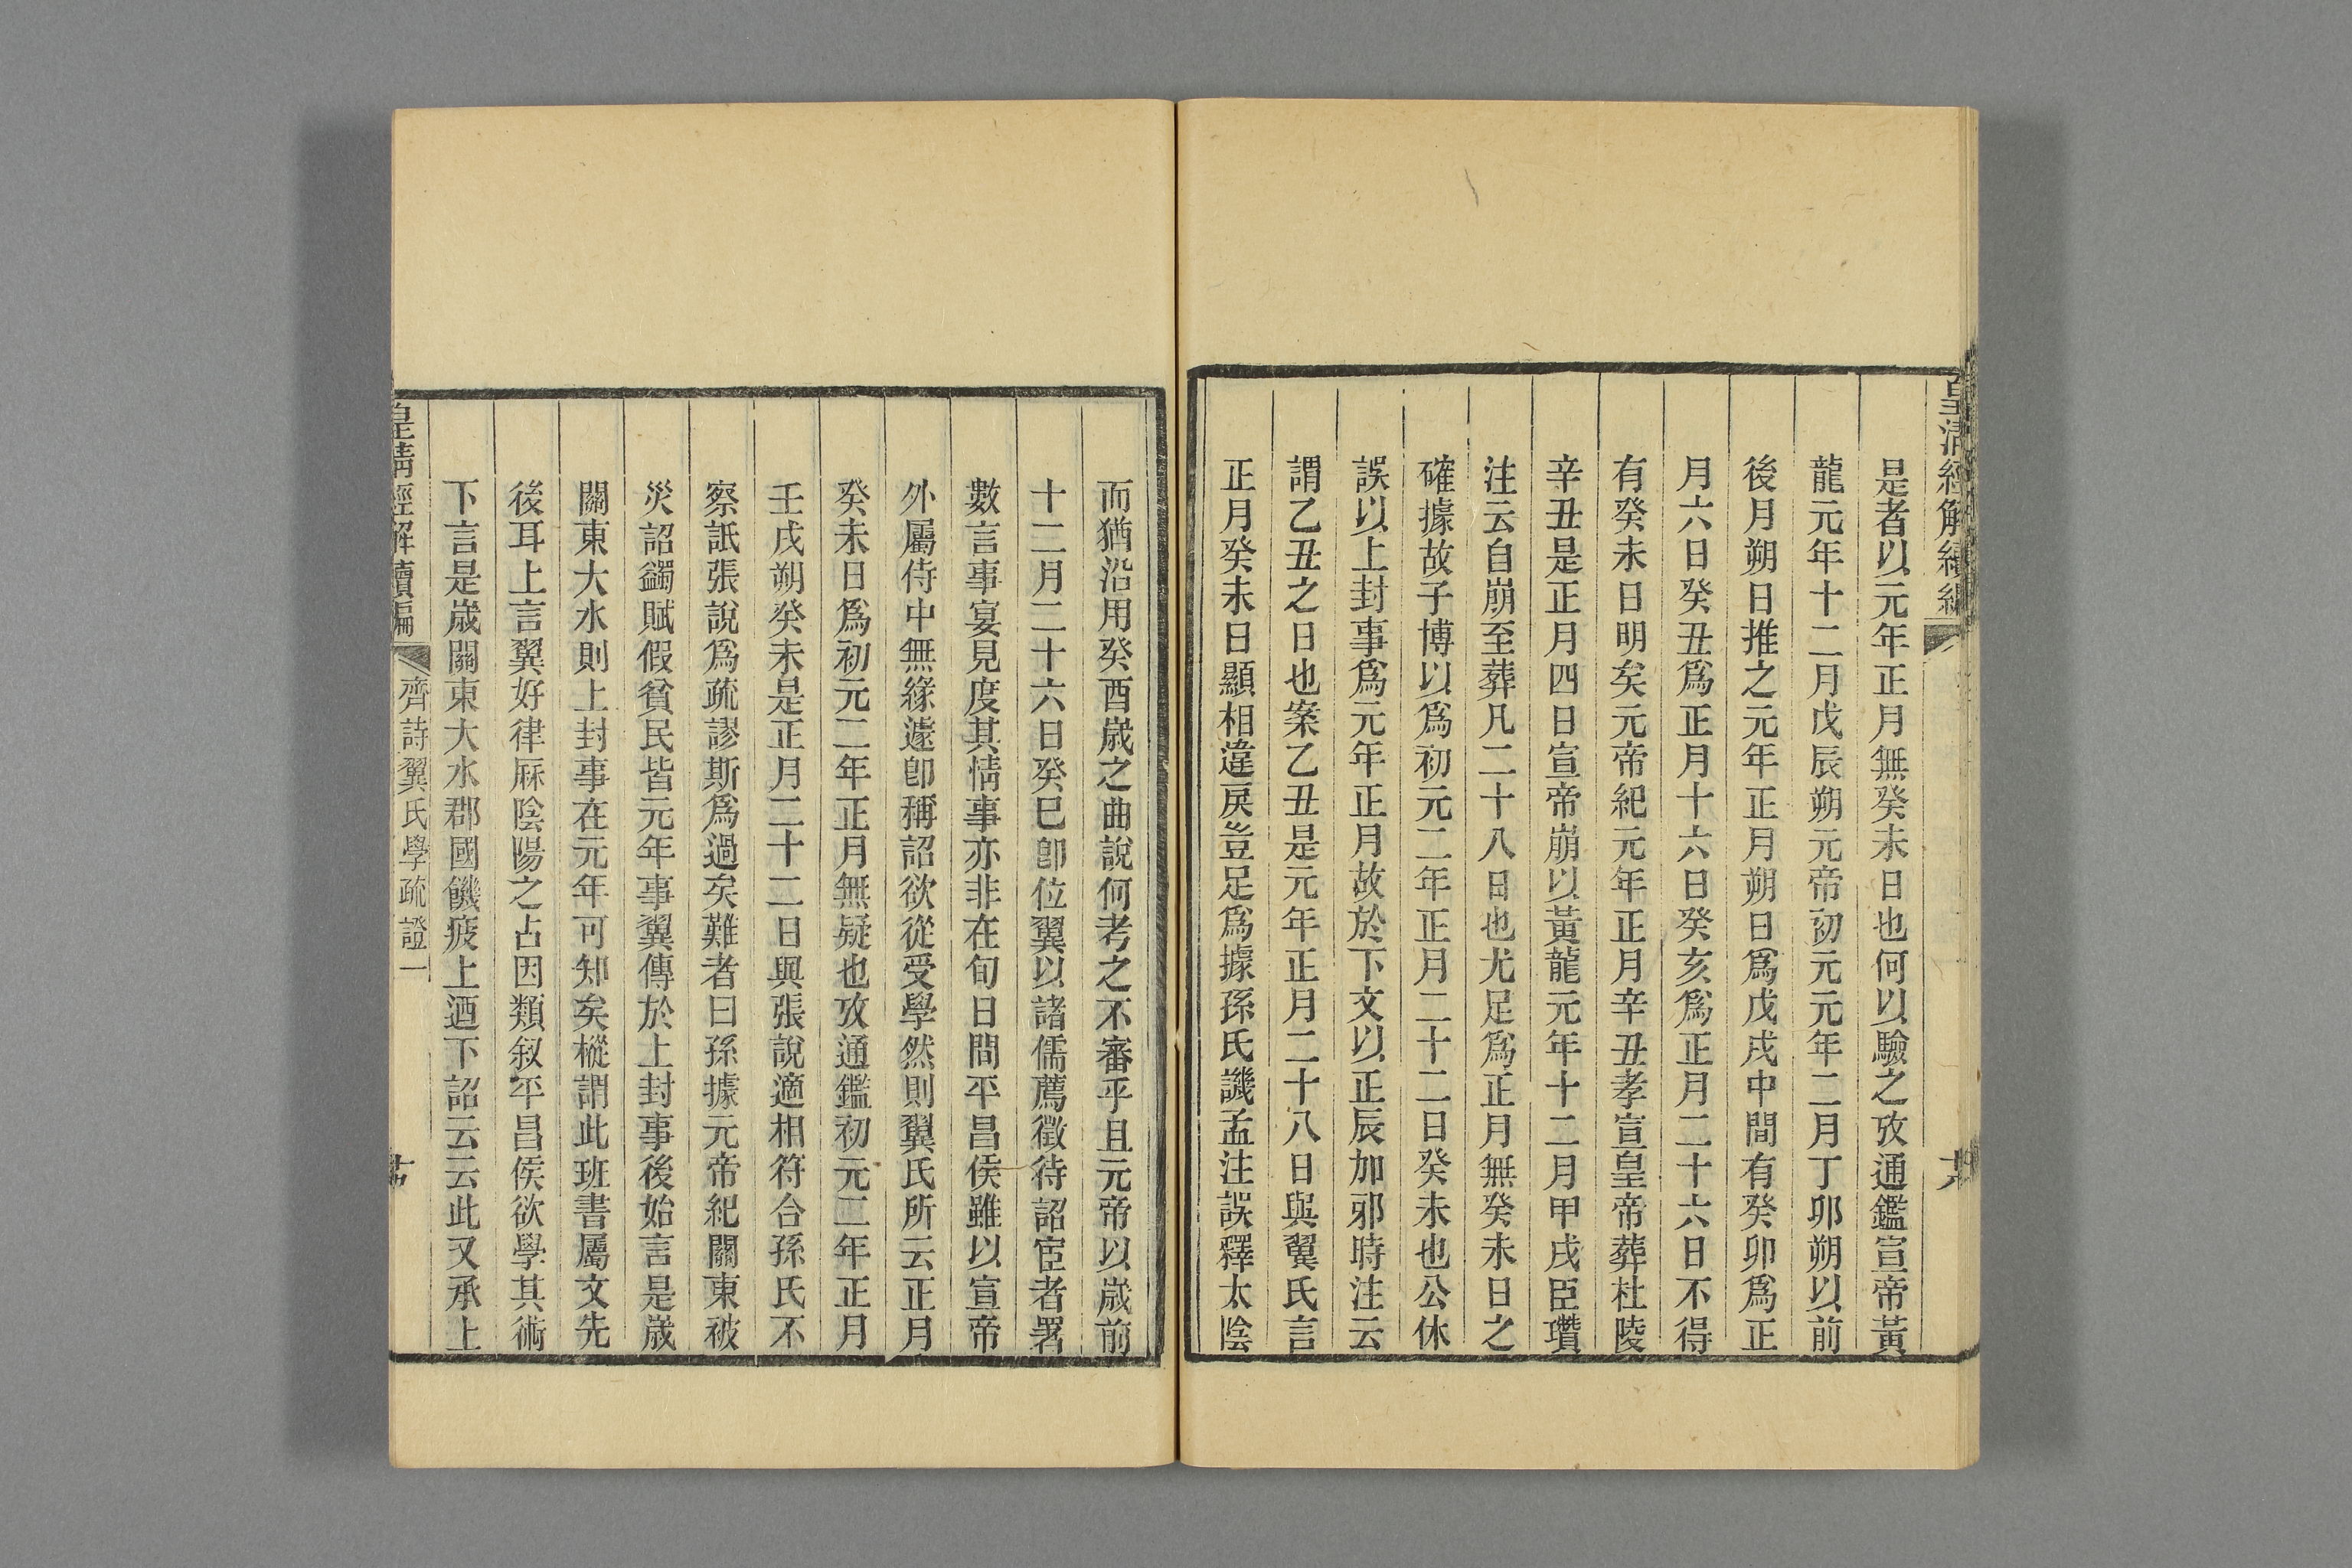 皇清經解續編
是者以元年正月無癸未日也何以驗之攷通鑑宣帝黃
龍元年十二月戊辰朔元帝初元元年二月丁卯朔以前
後月朔日推之元年正月朔日爲戊戌中間有癸卯爲正
月六日癸丑爲正月十六日癸亥爲正月二十六日不得
有癸未日明矣元帝紀元年正月辛丑孝宣皇帝葬杜陵
辛丑是正月四日宣帝崩以黃龍元年十二月甲戌臣瓚
注云自崩至葬凡二十八日也尤足爲正月無癸未日之
確據故子博以爲初元二年正月二十二日癸未也公休
誤以上封事爲元年正月故於下文以正辰加邪時注云
謂乙丑之日也案乙丑是元年正月二十八日與翼氏言
正月癸未日顯相違戾豈足爲據孫氏譏孟注誤釋太陰
而猶沿用癸酉歲之曲說何考之不審乎且元帝以歲前
十二月二十六日癸巳卽位翼以諸儒薦徵待詔宦者署
數言事宴見度其情事亦非在旬日間平昌侯雖以宣帝
外屬侍中無緣遽卽稱詔欲從受學然則翼氏所云正月
癸未日爲初元二年正月無疑也攷通鑑初元二年正月
壬戌朔癸未是正月二十二日與張說適相符合孫氏不
察詆張說爲疏謬斯爲過矣難者曰孫據元帝紀關東被
災詔蠲賦假貧民皆元年事翼傳於上封事後始言是歲
關東大水則上封事在元年可知矣樅謂此班書屬文先
後耳上言翼好律厤陰陽之占因類敘平昌侯欲學其術
下言是歲關東大水郡國饑疲上迺下詔云云此又承上
皇清經解續編
齊詩翼氏學疏證一